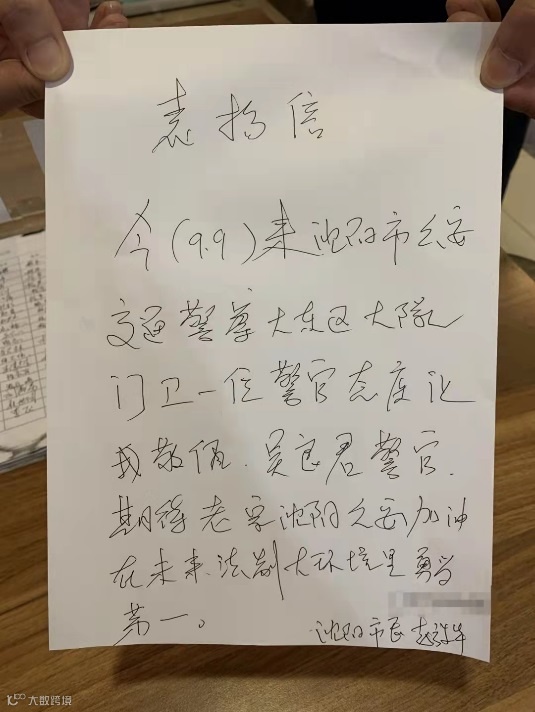 表扬信
今(9.9)来沈阳市公安
交通警察大东区大队
门卫一位警官态度让
我敬佩.吴良君警官.
期待老字沈阳公安加油
在未来法制大环境里勇当
第一。
沈阳市民
大数跨境